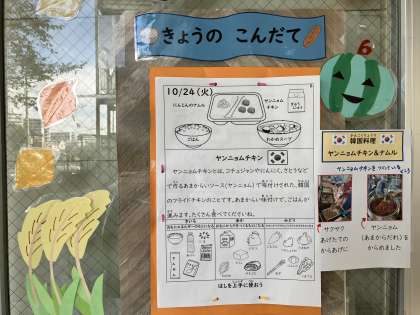 きょうの こんだて
10/24(火)
にんじんのナムル
ヤンニョム
チキン
ごはん
わかめスープ
ヤンニョムチキン
ヤンニョムチキンとは、コチュジャンやにんにく、さとうなど
で作るあまからいソース(ヤンニョム)で味付けされた、韓国
のフライドチキンのことです。あまからい味付けで、ごはんが
進みます。たくさん食べてくださいね。
はしを上手に使おう
韓国料理
ヤンニョムチキン&ナムル
ヤンニョムチキンをつくっているところ
サクサク
あげたての
からあげに
ヤンニョム
(あまからだれ)を
からめました